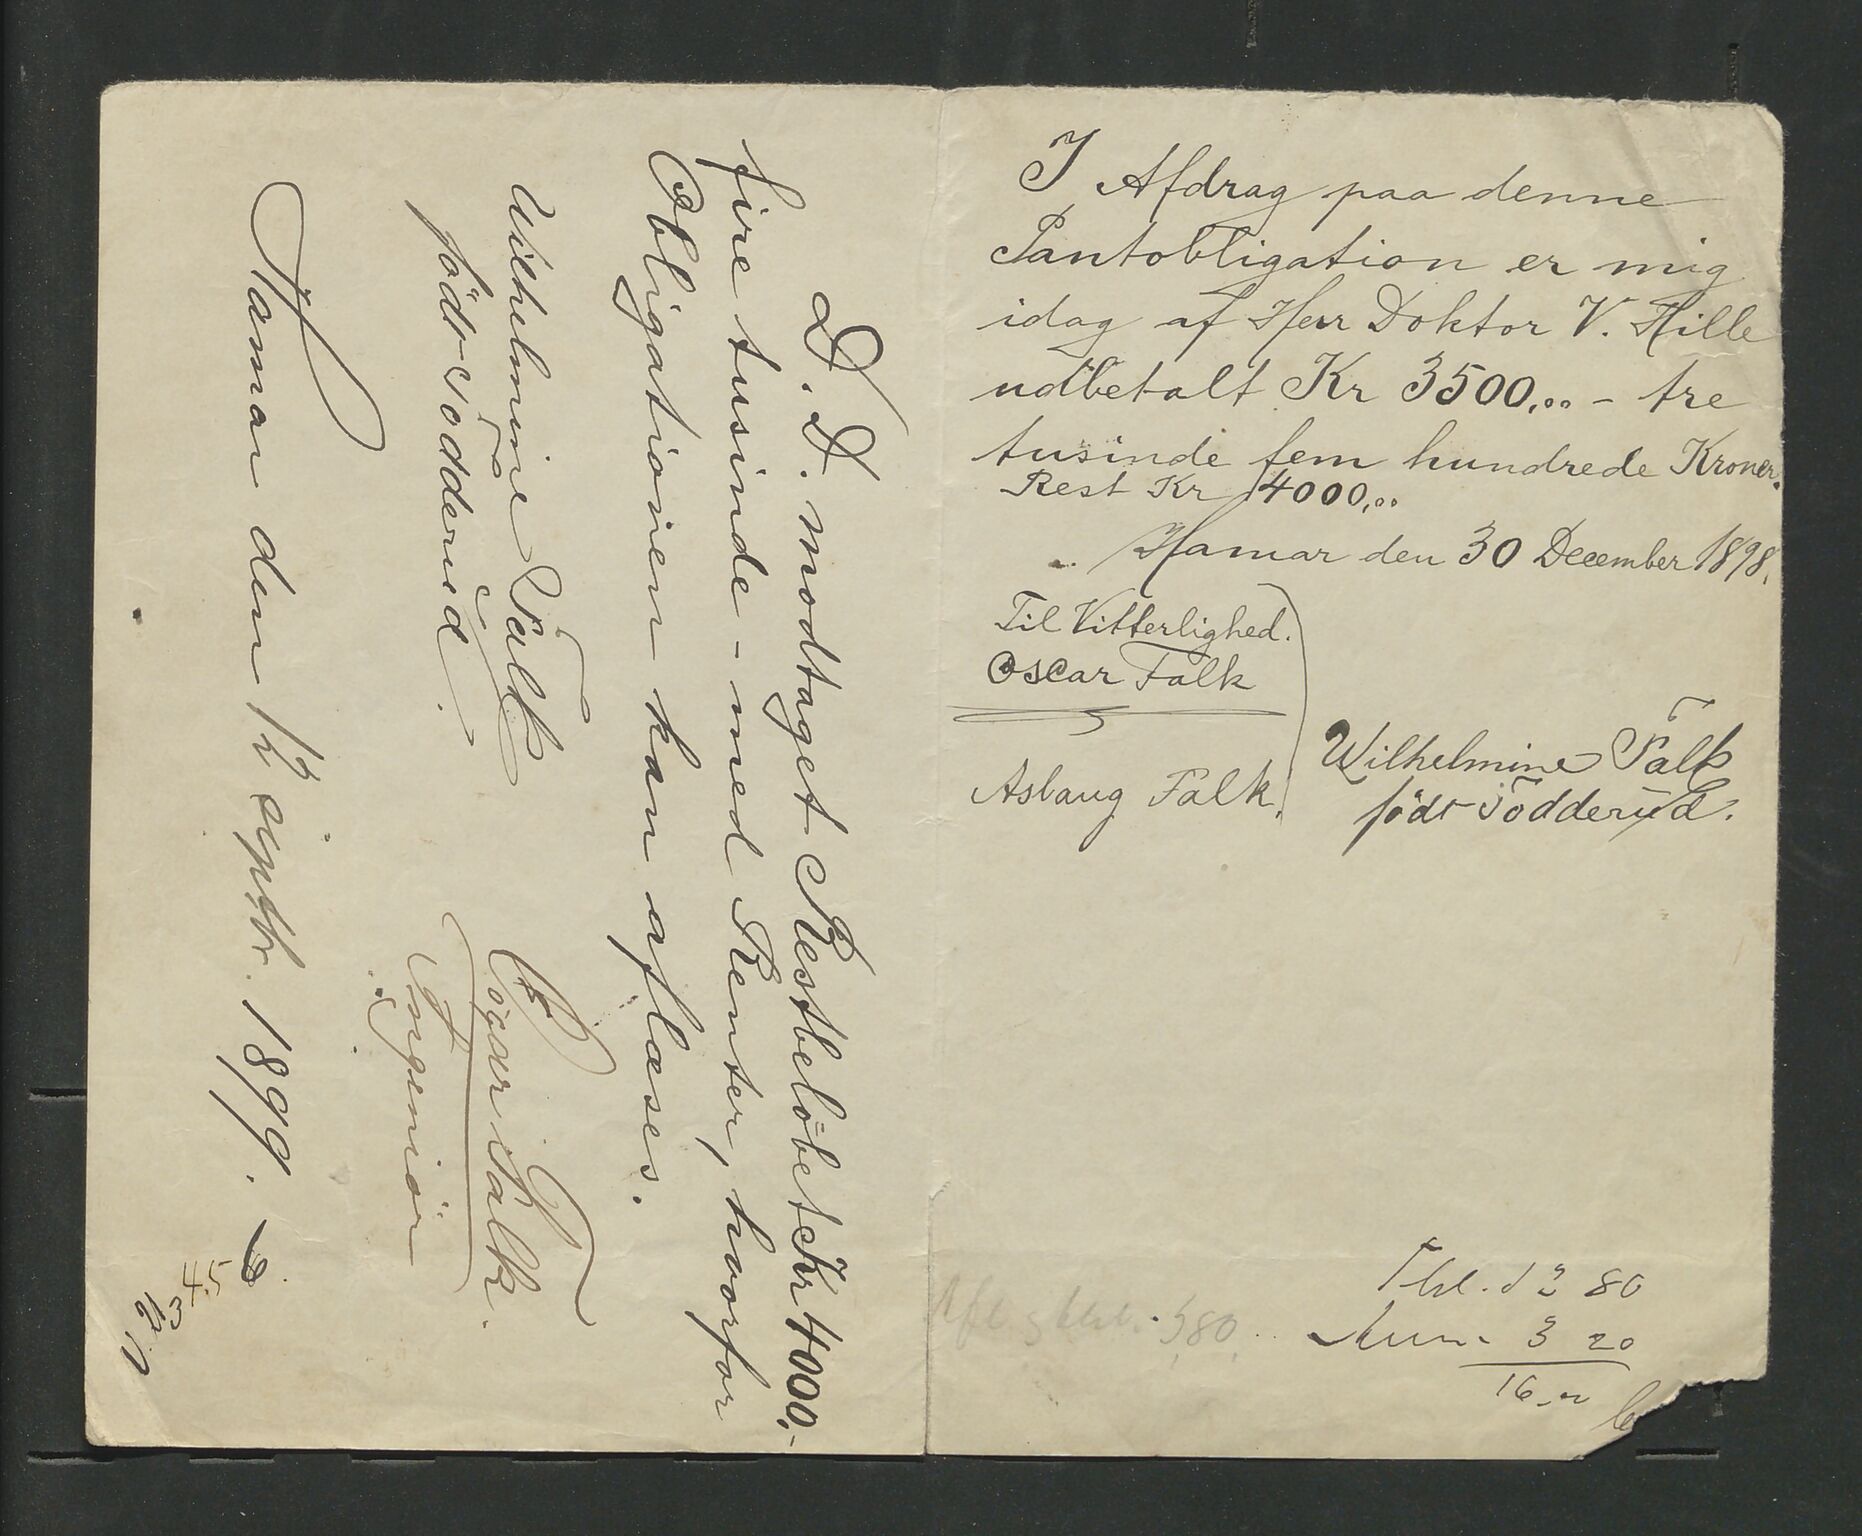 I Afdrag paa denne
Pantobligation er mig
idag af Herr Doktor V. Hille
udbetalt Kr 3500,00 - tre
tusinde fem hundrede Kroner.
Rest Kr 4000,00
Hamar den 30 December 1898.
Til Vitterlighed.
Oscar Falk
Aslaug Falk.
Wilhelmine Falk
födt Födderud.
80
3 20
16
D. D. modtaget Restbelöbet Kr 4000,-
fire tusinde - med Renter, hvorfor
Obligationen kan aflæses.
Wilhelmine Falk
födt Födderud.
Oscar Falk.
Ingeniör
Hamar den 12 septbr. 1899.
6
45
3
2
1